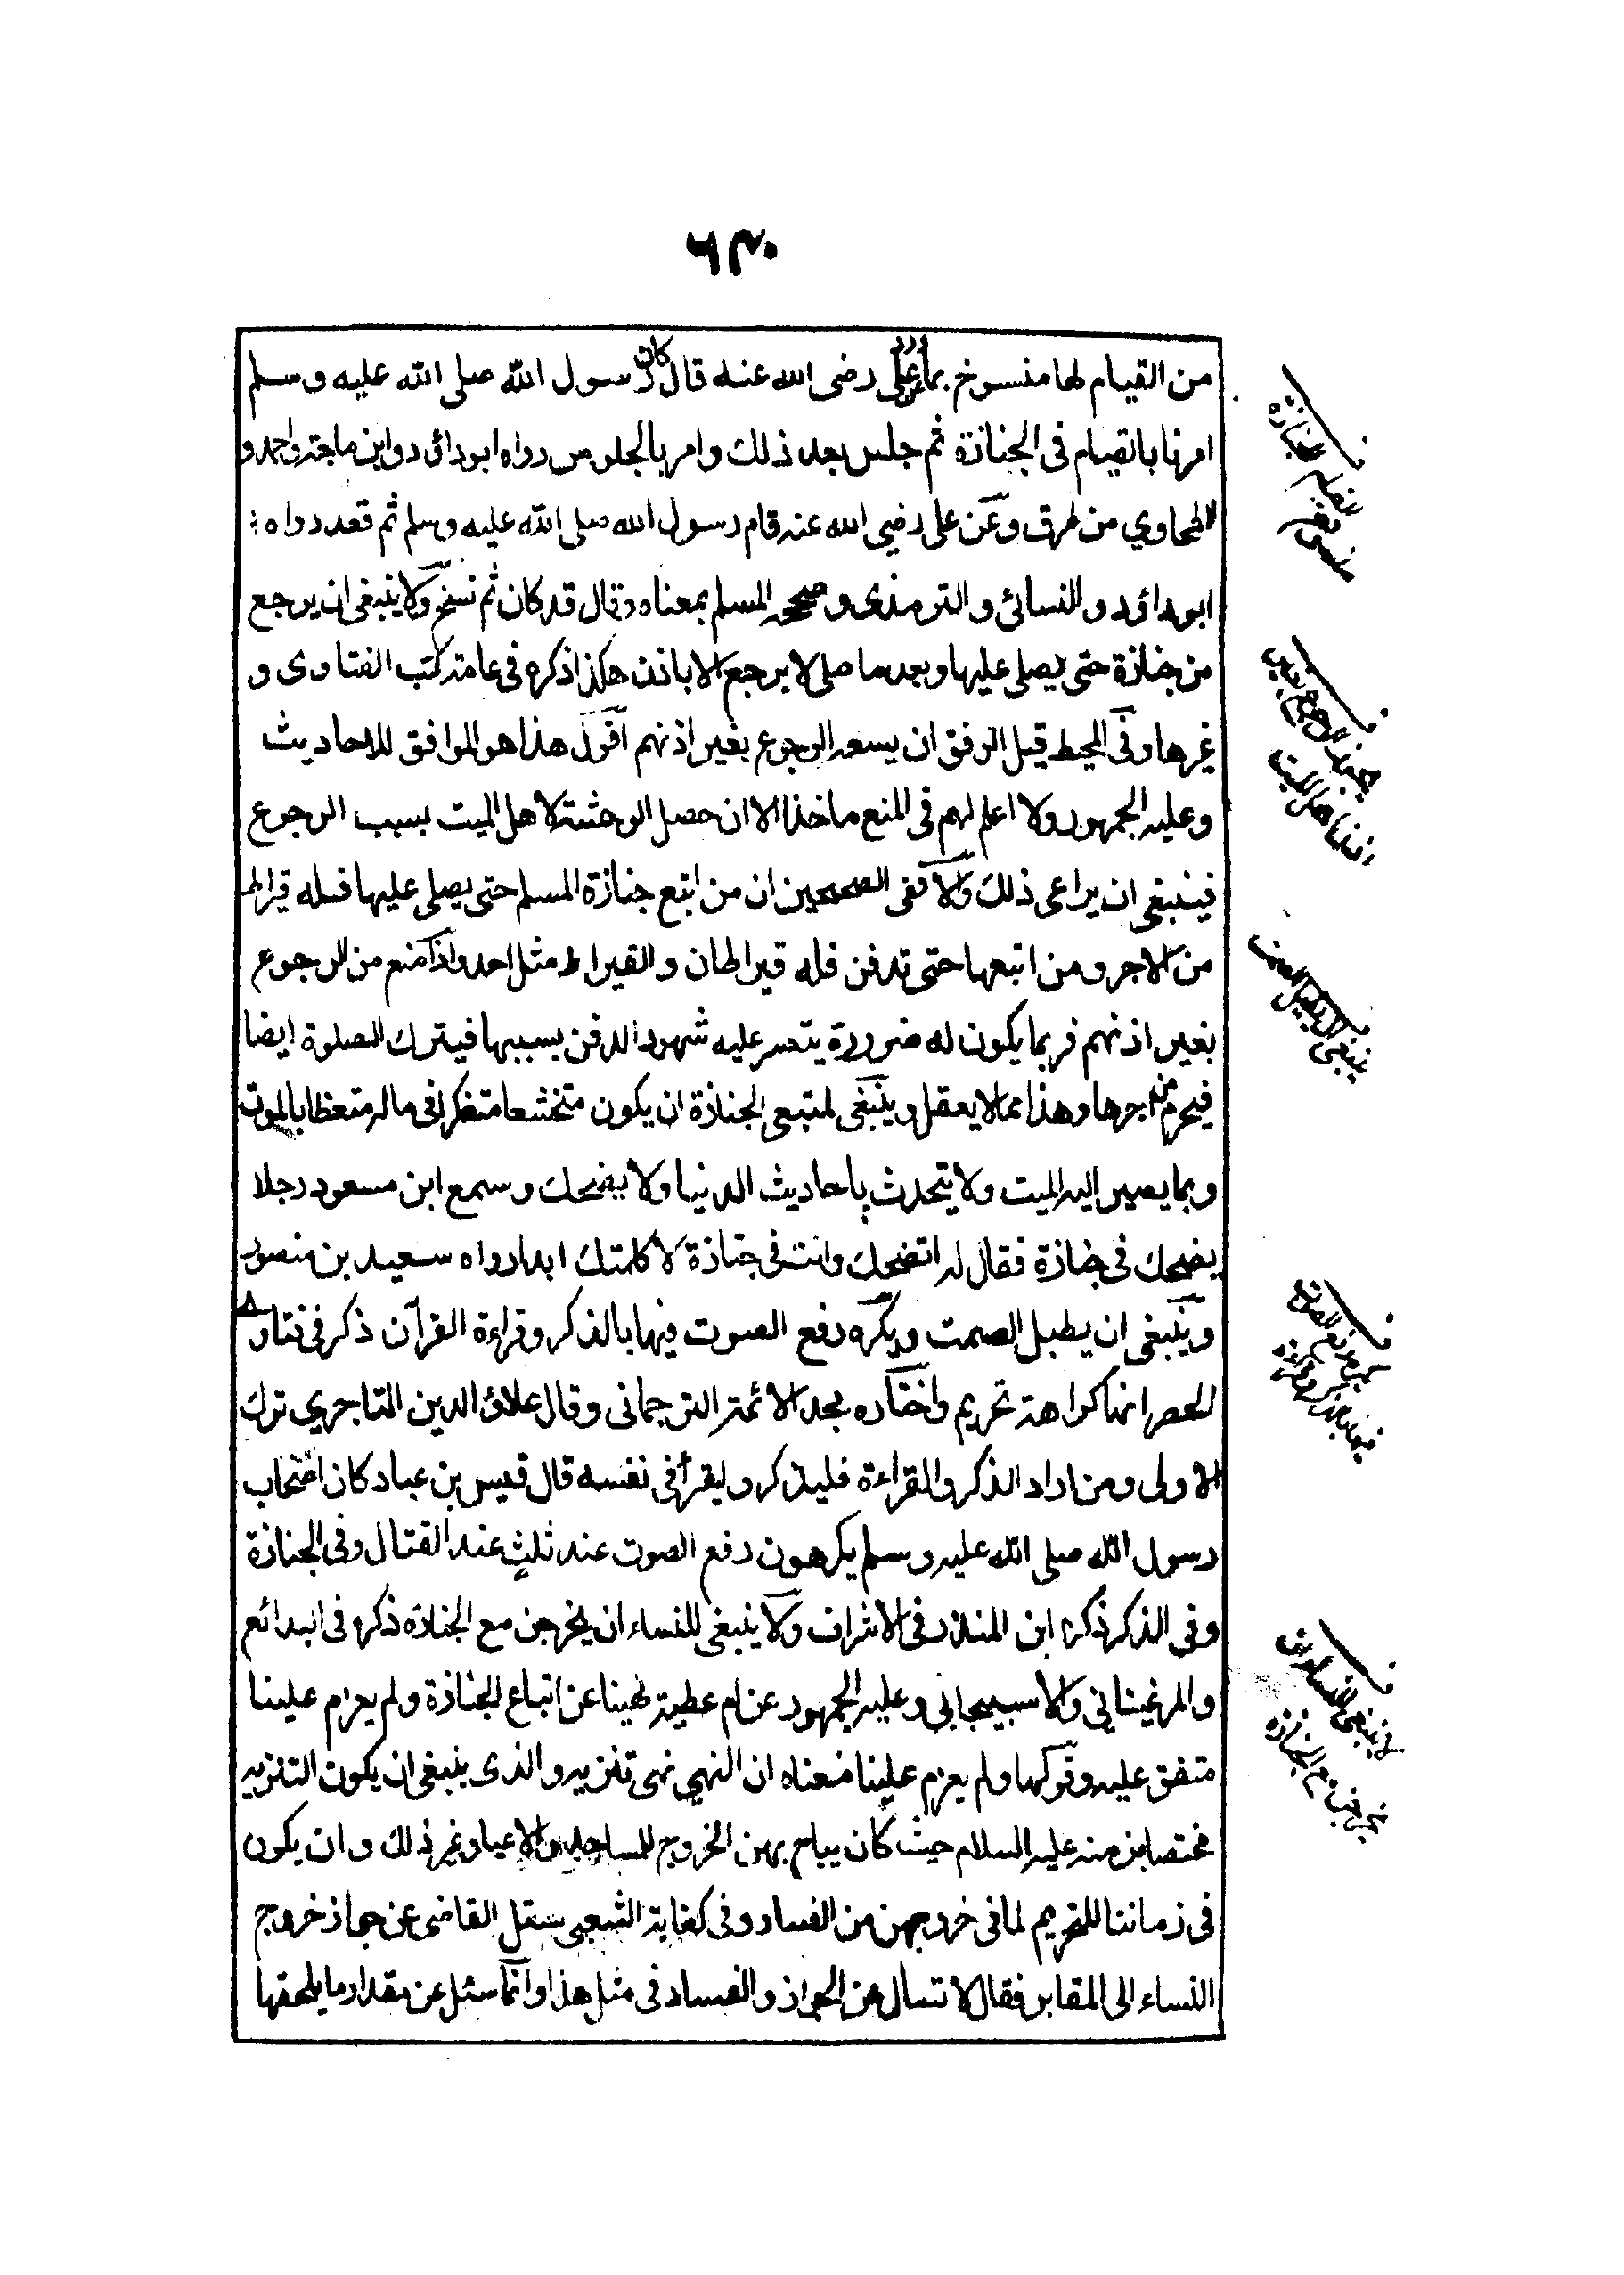 ٦٣٠
من القيام لها منسوخ بما ورد عن على رضى الله عنه قال كان رسول الله صلى الله عليه وسلم
امرنا بالقيام فى الجنازة ثم جلس بعد ذلك وامر بالجلوس رواه ابو داؤد وابن ماجة واحمد و
الطحاوي من طرق وعن على رضي الله عنه قام رسول الله صلى الله عليه وسلم ثم قعد رواه
ابو داؤد والنسائى والترمذى وصححه المسلم بمعناه وقال قد كان ثم نسخ ولا ينبغى ان يرجع
من جنازة حتى يصلى عليها وبعد ما صلى لا يرجع الا باذن هكذا ذكره فى عامة كتب الفتاوى و
غيرها وفى المحيط قيل الرفق ان يسعه الرجوع بغير اذنهم اقول هذا هو الموافق للاحاديث
وعليه الجمهور ولا اعلم لهم فى المنع ماخذا الا ان حصل الوحشة لاهل الميت بسبب الرجوع
فينبغى ان يراعى ذلك والا ففى الصحيحين ان من اتبع جنازة المسلم حتى يصلى عليها فله قيراط
من الاجر ومن اتبعها حتى تدفن فله قيراطان والقيراط مثل احد واذا منع من الرجوع
بغير اذنهم فربما يكون له ضرورة يتعسر عليه شهود الدفن بسببها فيترك الصلوة ايضا
فيحرم من اجرها وهذا مما لا يعقل وينبغى لمتبعى الجنازة ان يكون متخشعا متفكرا فى ماله متعظا بالموت
وبما يصير اليه الميت ولا يتحدث باحاديث الدنيا ولا يضحك وسمع ابن مسعود رجلا
يضحك فى جنازة فقال له اتضحك وانت فى جنازة لا كلمتك ابدا رواه سعيد بن منصور
وينبغى ان يطيل الصمت ويكره رفع الصوت فيها بالذكر وقراءة القرآن ذكر فى فتاوى
العصر انها كراهة تحريم واختاره مجد الائمة الترجمانى وقال علاؤ الدين التاجري ترك
الاولى ومن اراد الذكر والقراءة فليذكر وليقرأ فى نفسه قال قيس بن عباد كان اصحاب
رسول الله صلى الله عليه وسلم يكرهون رفع الصوت عند ثلث عند القتال وفى الجنازة
وفى الذكر ذكره ابن المنذر فى الاشراف ولا ينبغى للنساء ان يخرجن مع الجنازة ذكره فى البدائع
والمرغينانى والاسبيجابي وعليه الجمهور عن ام عطية نهينا عن اتباع الجنازة ولم يعزم علينا
متفق عليه وقولها ولم يعزم علينا معناه ان النهي نهى تنزيه والذى ينبغى ان يكون التنزيه
مختصا بزمنه عليه السلام حيث كان يباح بهن الخروج للمساجد والاعياد وغير ذلك وان يكون
فى زماننا للتحريم لما فى خروجهن من الفساد وفى كفاية الشعبى سئل القاضى عن جواز خروج
النساء الى المقابر فقال لا تسال عن الجواز والفساد فى مثل هذا وانما سئل عن مقدار ما يلحقها
القيام للجنازة
منسوخ
ينبغى ان يطيل الصمت
يكره رفع الصوت
فيها بالذكر وقراءة
لا ينبغى للنساء ان
يخرجن مع الجنازة